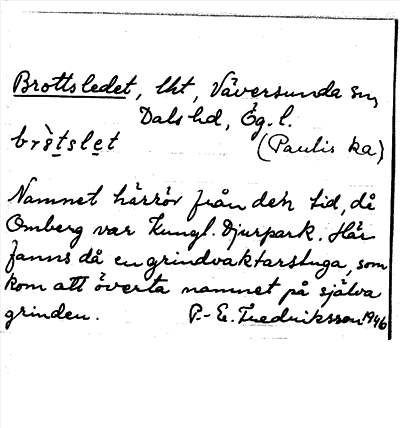 Brottsledet, lht, Väversunda sn,
Dals hd, Ög. l.
brötslet (Paulis ka)
Namnet härrör från den tid, då
Omberg var Kungl. Djurpark. Här
fanns då en grindvaktarstuga, som
kom att överta namnet på själva
grinden. P.-E. Fredriksson 1946